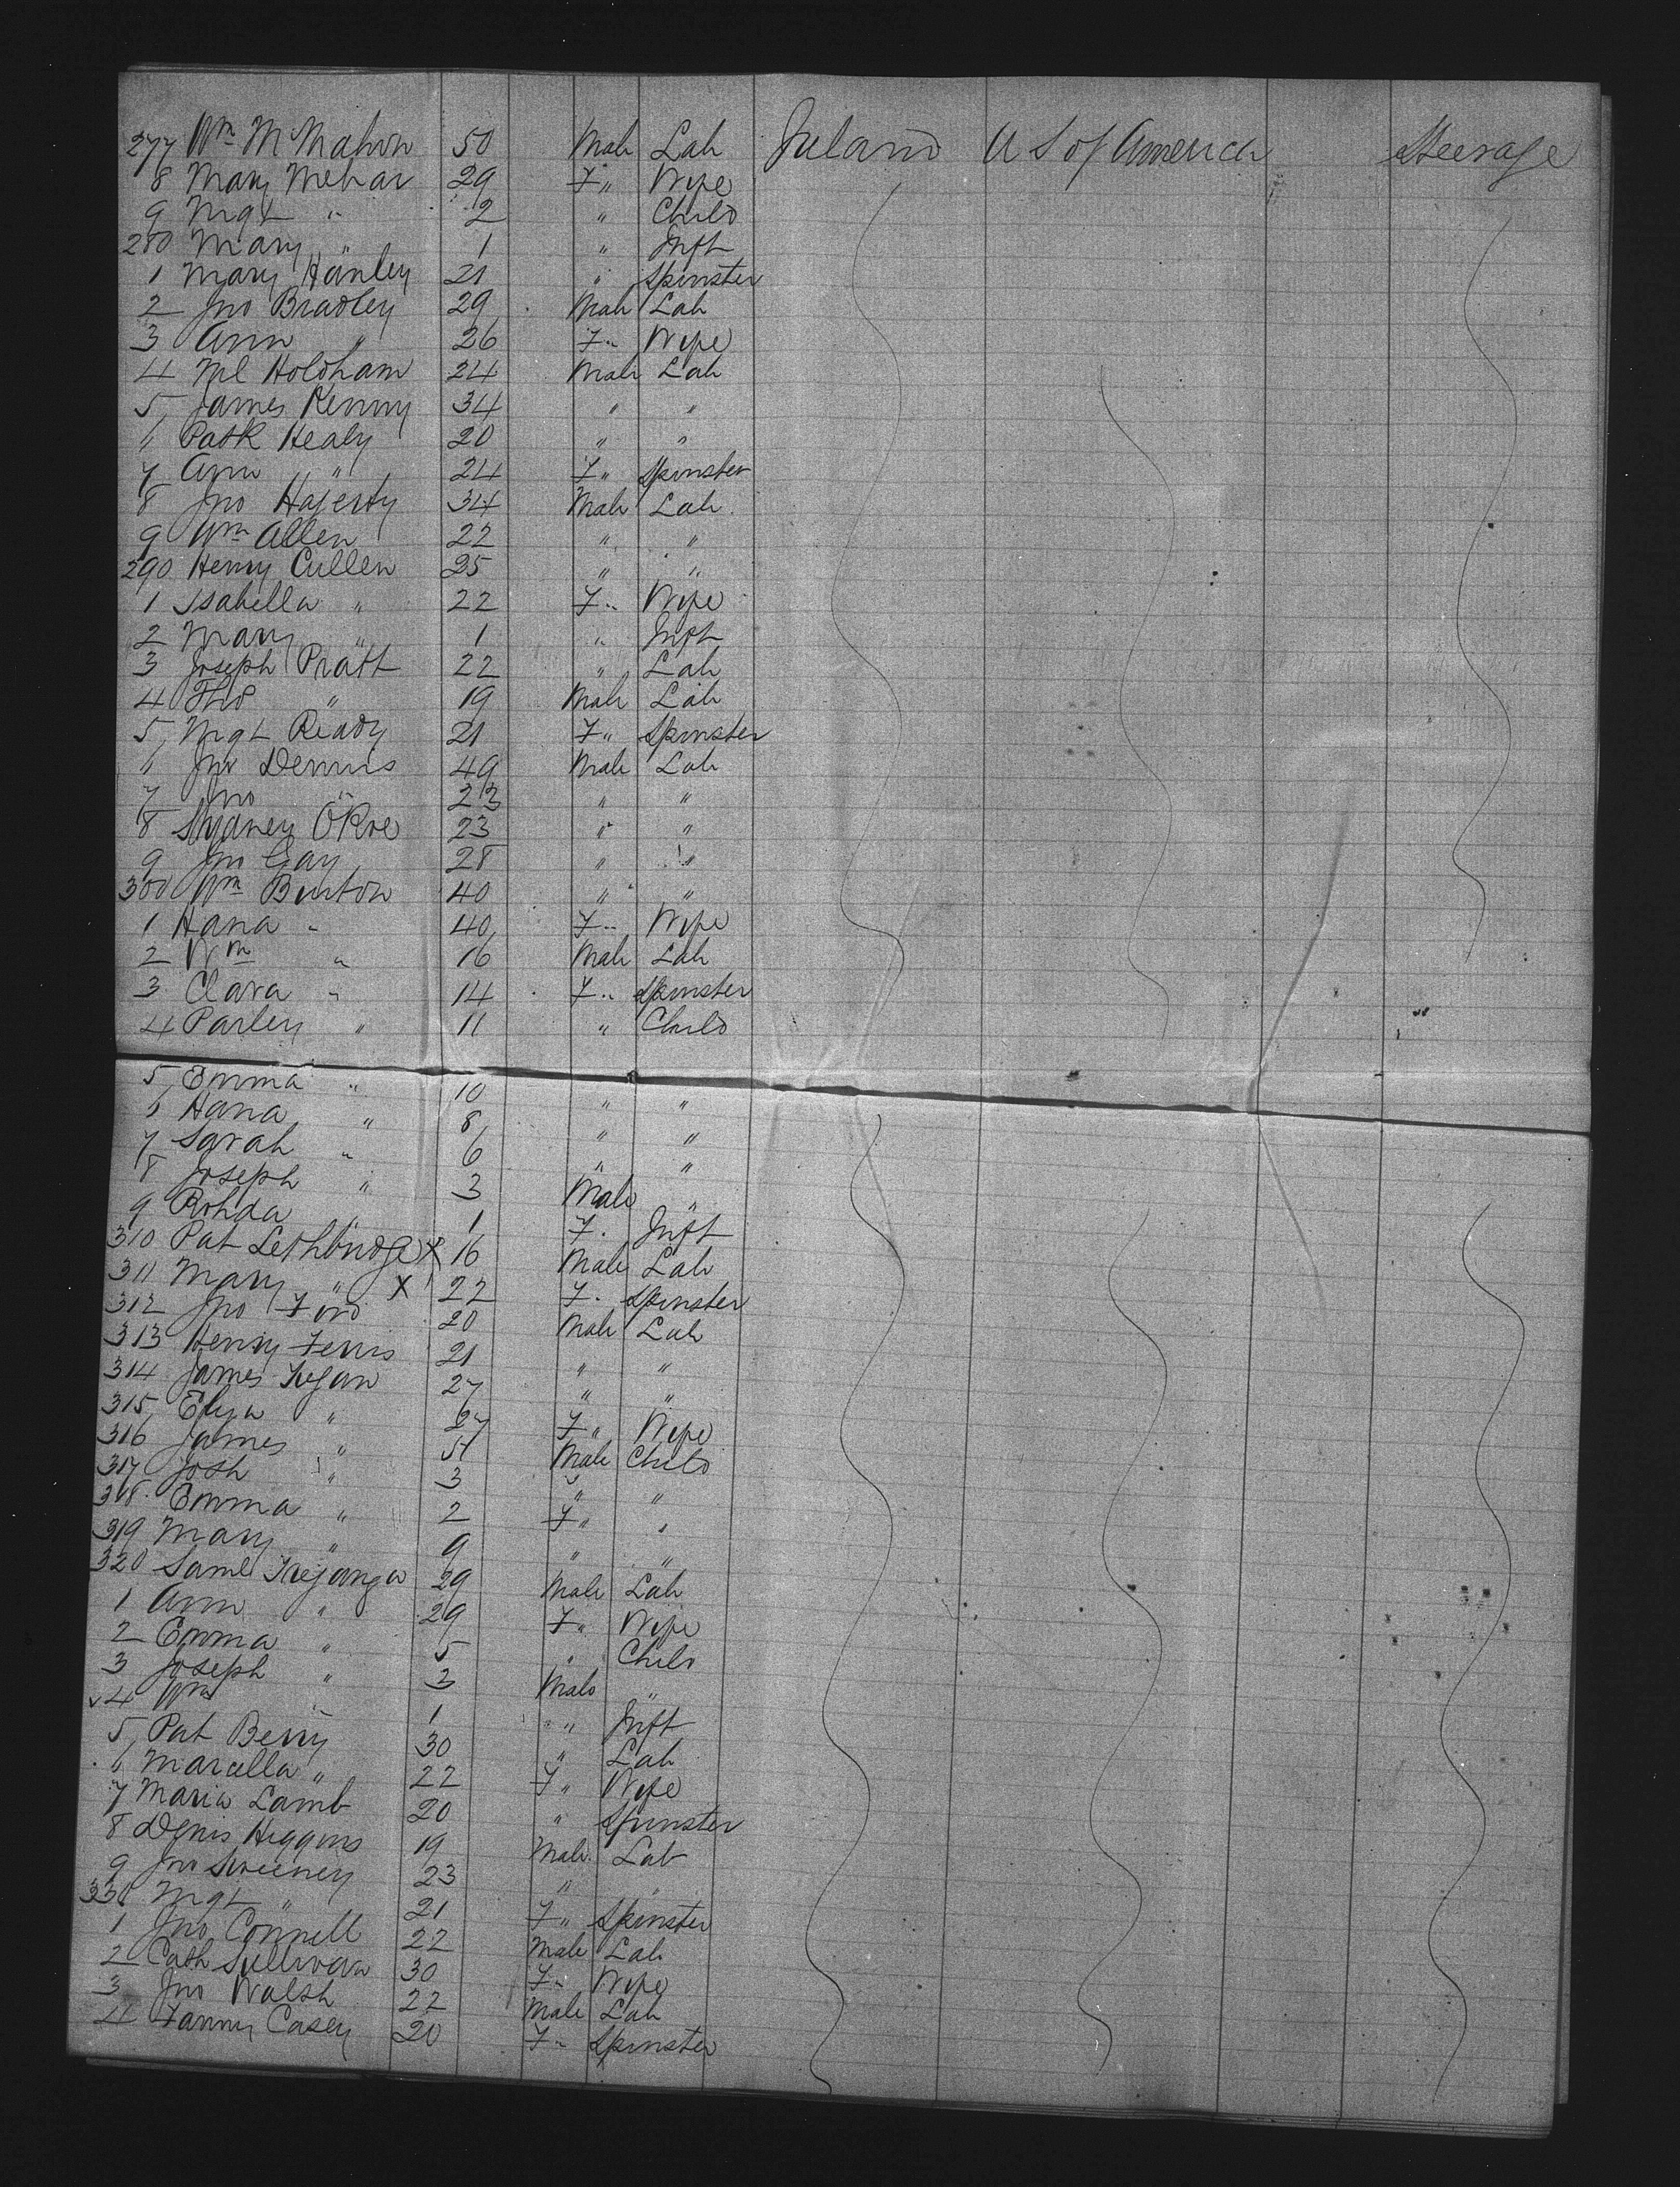 277 Wm McMahon 50 Male Lab Ireland U S of America Steerage
8 Mary Mehar 29 F " Wife
9 Mgt " 2 " Child
280 Mary " 1 " Inft
1 Mary Hanley 21 " Spinster
2 Jno Bradley 29 Male Lab
3 Ann " 26 F " Wife
4 Ml Holdham 24 Male Lab
5 James Kenny 34 " "
6 Patk Healy 20 " "
7 Ann " 24 F " Spinster
8 Jno Hagerty 34 Male Lab
9 Wm Allen 22 " "
290 Henry Cullen 25 " "
1 Isabella " 22 F " Wife
2 Mary " 1 " Inft
3 Joseph Pratt 22 " Lab
4 Thos " 19 Male Lab
5 Mgt Ready 21 F " Spinster
6 Jno Dennis 49 Male Lab
7 Jno " 23 " "
8 Sydney OKoe 23 " "
9 Jno Gay 28 " "
300 Wm Burton 40 " "
1 Hana " 40 F " Wife
2 Wm " 16 Male Lab
3 Clara " 14 F " Spinster
4 Parley " 11 " Child
5 Emma " 10 " "
6 Hana " 8 " "
7 Sarah " 6 " "
8 Joseph " 3 Male "
9 Rohda " 1 F " Inft
310 Pat Lethbridge X 16 Male Lab
311 Mary " X 22 F " Spinster
312 Jno Ford 20 Male Lab
313 Henry Ferris 21 " "
314 James Kegan 27 " "
315 Eliza " 27 F " Wife
316 James " 51 Male Child
317 Josh " 3 " "
318 Emma " 2 F " "
319 Mary " 9 " "
320 Saml 29 Male Lab
1 Ann " 29 F " Wife
2 Emma " 5 " Child
3 Joseph " 3 Male "
4 Wm " 1 " Inft
5 Pat Berry 30 " Lab
6 Marcella " 22 F " Wife
7 Maria Lamb 20 " Spinster
8 Denis Higgins 19 Male Lab
9 Jno Sweeney 23 " "
330 Mgt " 21 F " Spinster
1 Jno Connell 22 Male Lab
2 Cath Sullivan 30 F " Wife
3 Jno Walsh 22 Male Lab
4 Fanny Casey 20 F " Spinster